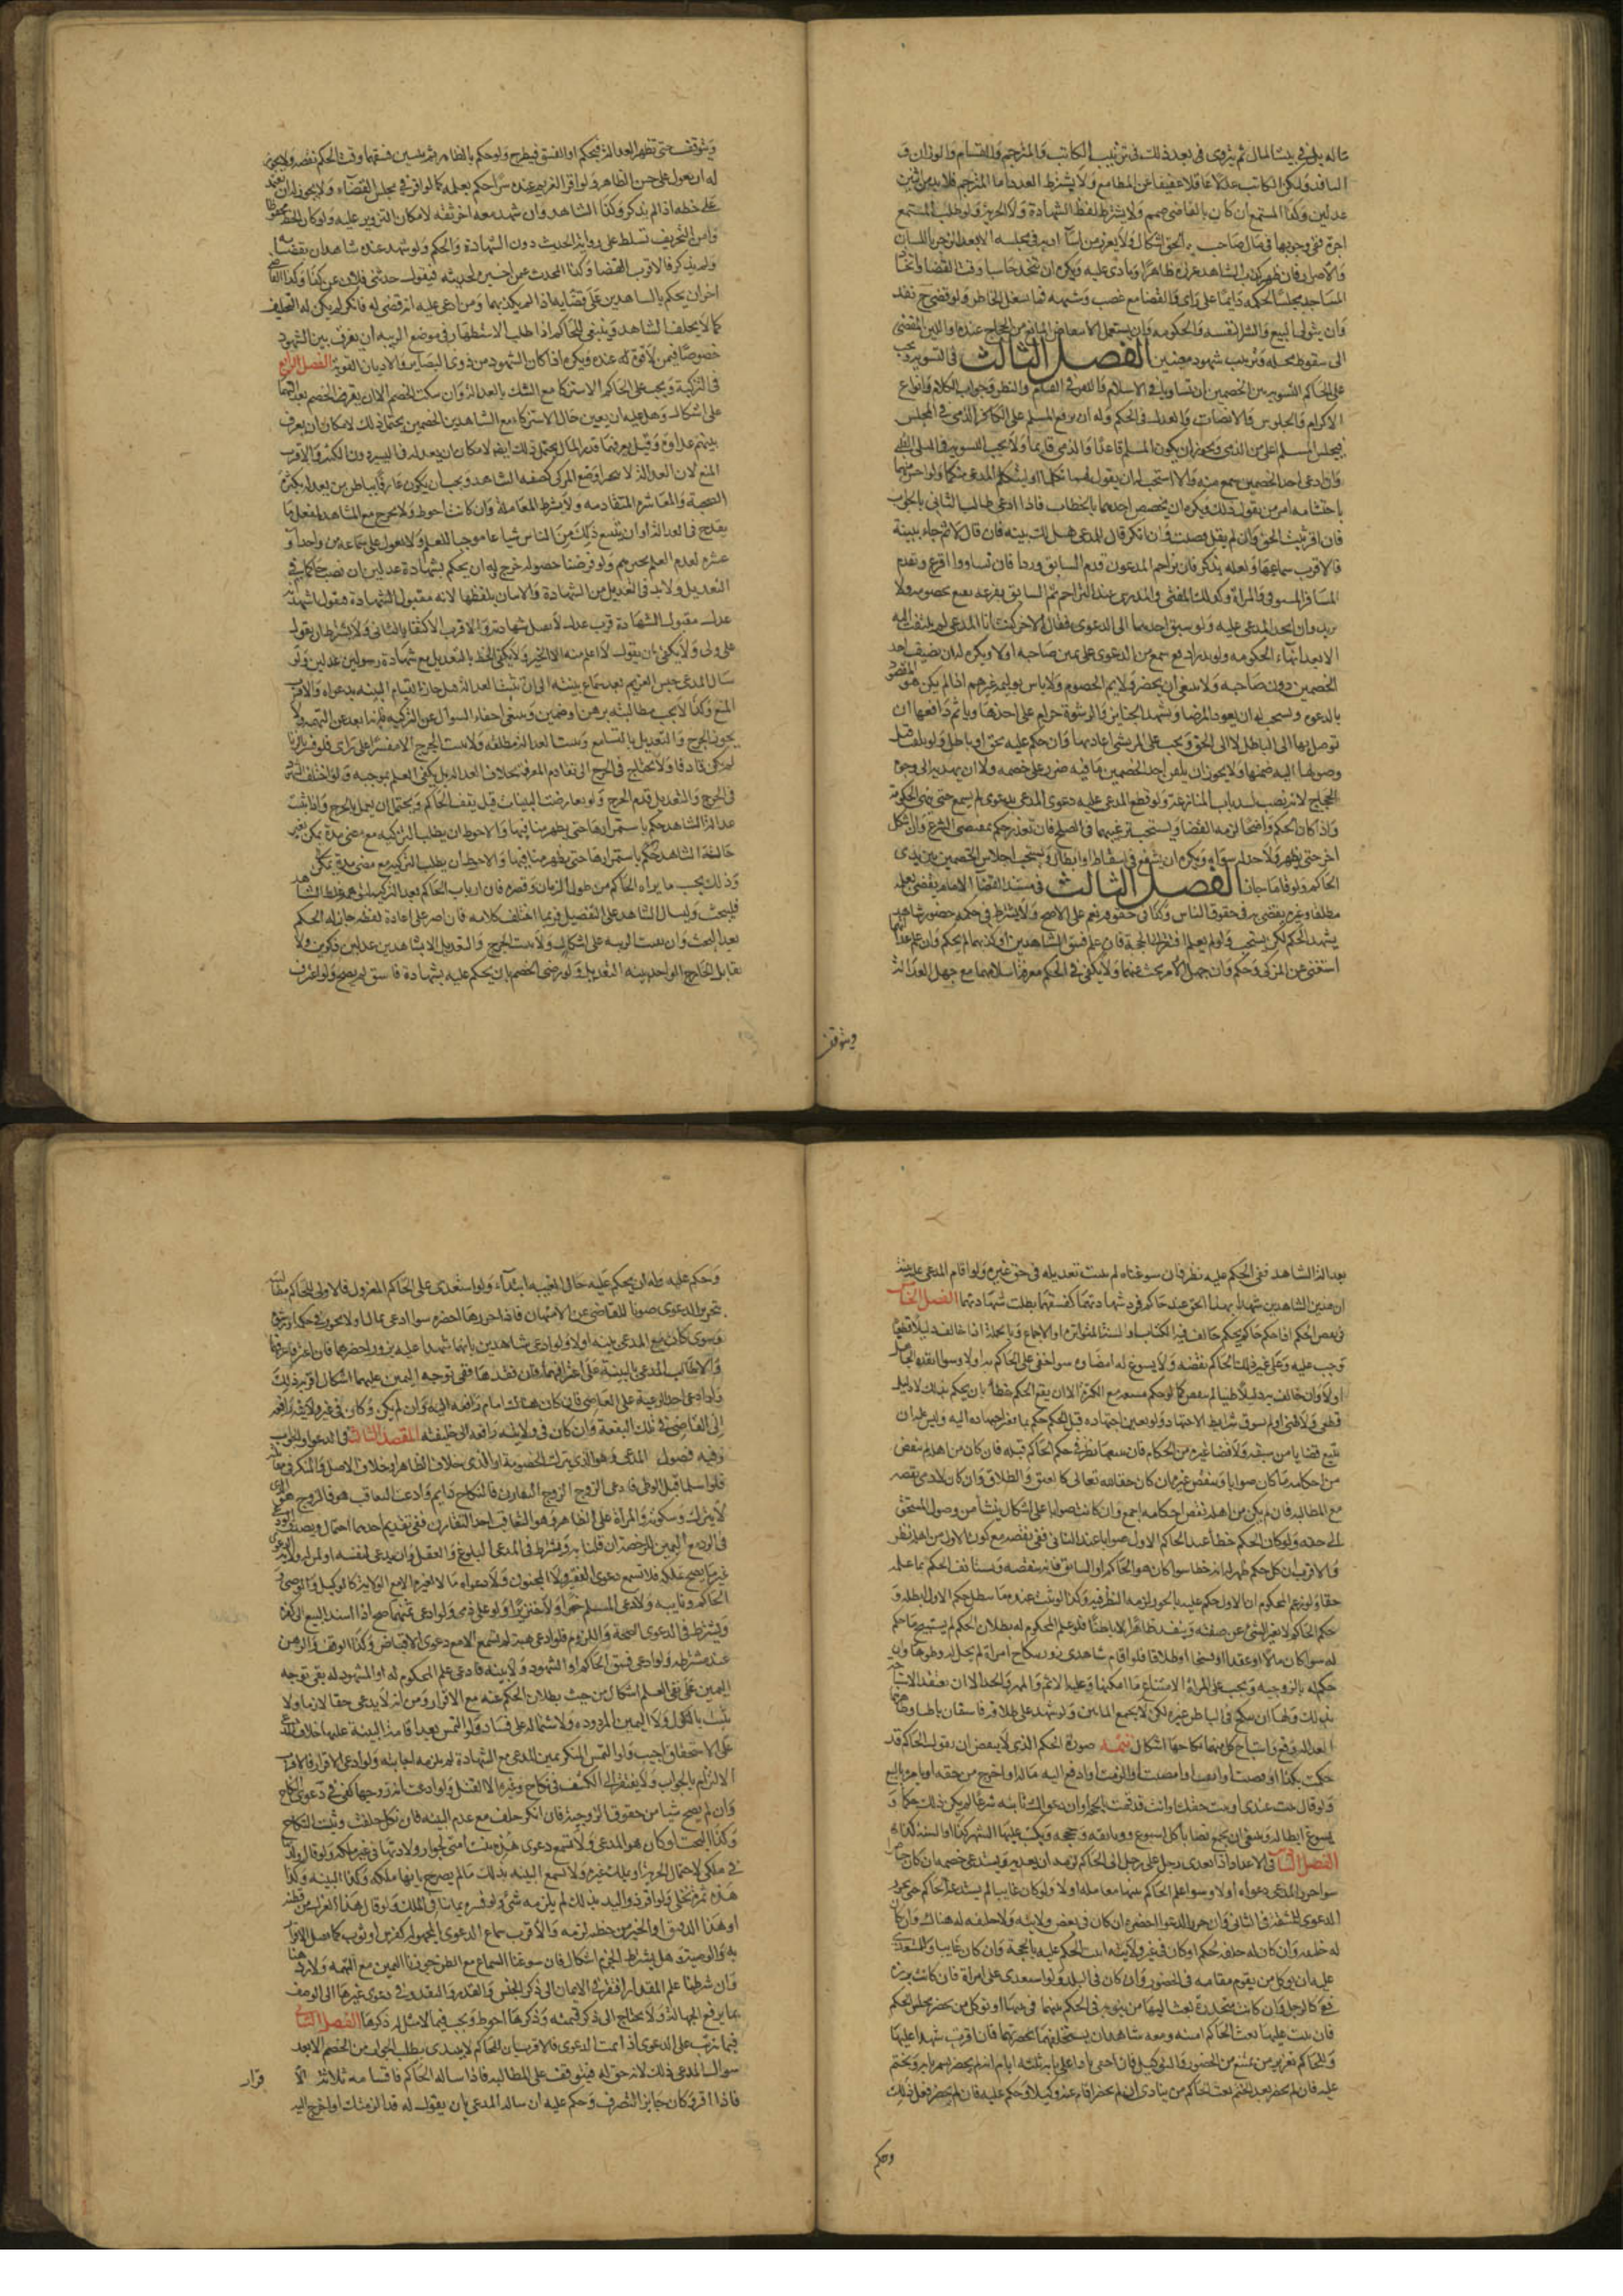 ماله بل في بيت المال ثم يتروى في بعد ذلك في ترتيب الكاتب والمترجم والقسام والوزان و
الناقد وليكن الكاتب عدلا عاقلا عفيفا عن المطامع ولا يشترط العدد اما المترجم فلا بد من اثنين
عدلين وكذا المسمع ان كان بالقاضي صمم ولا يشترط لفظ الشهادة ولا الحرية ولو طلب المسمع
اجرة ففي وجوبها في مال صاحب الحق اشكال ولا يعزر من اساء ادبه في مجلسه الا بعد الزجر باللسان
والاصرار فان ظهر كذب الشاهد عزره ظاهرا ونادى عليه ويكره ان يتخذ حاجبا وقت القضا واتخاذ
المساجد مجلسا لحكمه دايما على راى والقضا مع غضب وشبهه مما يشغل الخاطر ولو قضى ح نفذ
وان يتولى البيع والشرا لنفسه والحكومة وان يستعمل الانقباض المانع من الحجاج عنده واللين المفضى
الى سقوط محله وترتيب شهود معينين الفصل الثالث في التسوية يجب
على الحاكم التسوية بين الخصمين ان تساويا في الاسلام والكفر في القيام والنظر وجواب الكلام وانواع
الاكرام والجلوس والانصات والعدل في الحكم وله ان يرفع المسلم على الكافر الذمي في المجلس
فيجلس المسلم اعلى من الذمي ويجوز ان يكون المسلم قاعدا والذمي قايما ولا يجب التسوية في الميل القلبي
فان ادعى احد الخصمين سمع منه والا استحب له ان يقول لهما تكلما او ليتكلم المدعى منكما ولو احس منهما
باحتشامه امر من يقول ذلك ويكره ان يخصص احدهما بالخطاب فاذا ادعى طالب الثاني بالجواب
فان اقر ثبت الحق وان لم يقل قضيت وان انكر قال للمدعى هل لك بينة فان قال لا ثم جاء ببينة
فالاقرب سماعها ولعله يتذكر فان تزاحم المدعون قدم السابق ورودا فان تساووا اقرع ويقدم
المسافر المستوفز والمراة وكذلك المفتي والمدرس عند التزاحم ثم السابق بقرعة يقنع بخصومة ولا
يزيد وان اتحد المدعى عليه ولو سبق احدهما الى الدعوى فقال الاخر كنت انا المدعى لم يلتفت اليه
الا بعد انهاء الحكومة ولو بدرا دفعة سمع من الدعوى على يمين صاحبه اولا ويكره له ان يضيف احد
الخصمين دون صاحبه ولا ينبغي ان يحضر ولايم الخصوم ولا باس بوليمة غيرهم اذا لم يكن هو المقصود
بالدعوة ويستحب له ان يعود المرضا ويشهد الجنايز والرشوة حرام على اخذها وياثم دافعها ان
توصل بها الى الباطل لا الى الحق ويجب على المرتشي اعادتها وان حكم عليه بحق او باطل ولو تلفت قبل
وصولها اليه ضمنها ولا يجوز ان يلقن احد الخصمين ما فيه ضرر على خصمه ولا ان يهديه الى وجوه
الحجاج لانه نصب لسد باب المنازعة ولو قطع المدعى عليه دعوى المدعى بدعوى لم يسمع حتى ينهى الحكومة
واذا كان الحكم واضحا لزمه القضا ويستحب ترغيبهما في الصلح فان تعذر حكم بمقتضى الشرع وان اشكل
اخر حتى يظهر ولا حد له سواه ويكره ان يشفع في اسقاط او ابطال ويستحب اجلاس الخصمين بين يدي
الحاكم ولو قاما جاز الفصل الثالث في مستند القضا الامام يقضى بعلمه
مطلقا وغيره يقضى به في حقوق الناس وكذا في حقوقه تعالى على الاصح ولا يشترط في حكمه حضور شاهد
يشهد الحكم لكن يستحب ولو لم يعلم افتقر الى الحجة فان علم فسق الشاهدين او كذبهما لم يحكم وان علم عدالتهما
استغنى عن المزكى وحكم وان جهل الامر بحث عنهما ولا يكفى في الحكم معرفة اسلامهما مع جهل العدالة
ويتوقف
ويتوقف حتى تظهر العدالة فيحكم او الفسق فيطرح ولو حكم بالظاهر ثم تبين فسقهما وقت الحكم نقضه ولا يجوز
له ان يعول على حسن الظاهر ولو اقر الغريم عنده سرا حكم بعلمه كما لو اقر في مجلس القضاء ولا يجوز له ان يعتمد
على خطه اذا لم يتذكر وكذا الشاهد وان شهد معه اخر ثقة لامكان التزوير عليه ولو كان الخط محفوظا
وامن التحريف تسلط على رواية الحديث دون الشهادة والحكم ولو شهد عنده شاهدان بقضائه
ولم يتذكر فالاقرب القضا وكذا المحدث عمن اخبره بحديثه فيقول حدثني فلان عن كذا وكذا القاضي
اخر ان يحكم بالشاهدين على قضائه اذا لم يكذبهما ومن ادعى عليه انه قضى له فانكر لم يكن له التحليف
كما لا يحلف الشاهد وينبغي للحاكم اذا طلب الاستظهار في موضع الريبة ان يفرق بين الشهود
خصوصا فيمن لا قوة له عنده ويكره اذا كان الشهود من ذوى البصاير والاديان القوية الفصل الرابع
في التزكية ويجب على الحاكم الاستزكا مع الشك بالعدالة وان سكت الخصم الا ان يقر الخصم بعدالتهما
على اشكال وهل عليه ان يعين حال الاستزكاء مع الشاهدين الخصمين يحتمل ذلك لامكان ان يعرف
بينهم عداوة وقيل يعرفهما قدر المال يحتمل ذلك ايضا لامكان ان يعدله في اليسير دون الكثير والاقرب
المنع لان العدالة لا تتجزا وصفة المزكى كصفة الشاهد ويجب ان يكون عارفا بباطن من يعدله بكثرة
الصحبة والمعاشرة المتقادمة ولا يشترط المعاملة وان كانت احوط ولا يجرح مع المشاهدة لفعل ما
يقدح في العدالة او ان يشيع ذلك من الناس شياعا موجبا للعلم ولا يعول على سماعه من واحد او
عشرة لعدم العلم بخبرهم ولو فرضنا حصوله جرح له ان يحكم بشهادة عدلين ان نصب حاكما في
التعديل ولا بد في التعديل من الشهادة والاتيان بلفظها لانه مقبول الشهادة فيقول اشهد انه
عدل مقبول الشهادة فرب عدل لا يقبل شهادته والاقرب الاكتفا بالثاني ولا يشترط ان يقول
على ولى ولا يكفى ان يقول لا اعلم منه الا الخير ولا يكفى الخط بالتعديل مع شهادة رسولين عدلين ولو
سال المدعى حبس الغريم بعد سماع بينته الى ان تثبت العدالة قيل جاز لقيام البينة بدعواه والاقرب
المنع وكذا لا يجب مطالبته برهن او ضمين وينبغي اخفاء السوال عن التزكية فانه ابعد عن التهمة ولا
في الجرح والتعديل قدم الجرح ولو تعارضت البينات قيل يقف الحاكم ويحتمل ان يعمل بالجرح واذا ثبت
عدالة الشاهد حكم باستمرارها حتى يظهر منافيها والاحوط ان يطلب التزكية مع مضى مدة يمكن تغير
حالة الشاهد حكم باستمرارها حتى يظهر منافيها والاحوط ان يطلب التزكية مع مضى مدة يمكن
وذلك بحسب ما يراه الحاكم من طول الزمان وقصره فان ارتاب الحاكم بعد التزكية
فليبحث وليسال الشاهد على التفصيل فربما اختلف كلامه فان اصر على اعادة لفظه جاز له الحكم
بعد البحث وان بقيت الريبة على اشكال ولا يثبت الجرح والتعديل الا بشاهدين عدلين ذكرين ولا
يقابل الجارح الواحد بينة التعديل ولو رضى الخصم بان يحكم عليه بشهادة فاسق لم يصح ولو اعترف
بعدالة الشاهد ففي الحكم عليه نظر فان سوغناه لم يثبت تعديله في حق غيره ولو اقام المدعى عليه بينة
ان هذين الشاهدين شهدا بهذا الحق عند حاكم فرد شهادتهما لفسقهما بطلت شهادتهما الفصل الخامس
في نقض الحكم اذا حكم حاكم بحكم خالف فيه الكتاب او السنة المتواترة او الاجماع وبالجملة اذا خالف دليلا قطعيا
وجب عليه وعلى غير ذلك الحاكم نقضه ولا يسوغ له امضاوه سوا خفى على الحاكم به اولا وسوا انفذه الجاهل
قطعى ولا ظنى او لم يستوف شرايط الاجتهاد ولو تغير اجتهاده قبل الحكم حكم بما تغير اجتهاده اليه وليس عليه ان
يتتبع قضايا من سبقه ولا قضا غيره من الحكام فان تتبعها نظر في حكم الحاكم قبله فان كان من اهله لم ينقض
من احكامه ما كان صوابا وينقض غيره ان كان حقا لله تعالى كالعتق والطلاق وان كان لادمى نقضه
مع المطالبة فان لم يكن من اهله نقض احكامه اجمع وان كانت صوابا على اشكال ينشأ من وصول المستحق
الى حقه ولو كان الحكم خطأ عند الحاكم الاول صوابا عند الثاني ففي نقضه مع كون الاول من اهله نظر
والاقرب ان كل حكم ظهر له انه خطا سوا كان هو الحاكم او السابق فانه ينقضه ويستانف الحكم بما علمه
حقا ولو زعم المحكوم ان الاول حكم عليه بالجور لزمه النظر فيه وكذا لو ثبت عنده ما يبطل حكم الاول ابطله و
حكم الحاكم لا يغير الشئ عن صفته وينفذ ظاهرا لا باطنا فلو علم المحكوم له بطلان الحكم لم يستبح ما حكم
له سوا كان مالا او عقدا او فسخا او طلاقا فلو اقام شاهدى زور بنكاح امراة لم يحل له وطوها وان
حكم له بالزوجية ويجب على المراة الامتناع ما امكنها وعليه الاثم والمهر والحد الا ان يعتقد الاباحة
بذلك ولها ان تنكح في الباطن غيره لكن لا يجمع المائين ولو شهد على طلاقها فاسقان باطنا وظاهرهما
العدالة وقع واستباح كل منهما نكاحها اشكال تتمة صورة الحكم الذي لا ينقض ان يقول الحاكم قد
حكمت بكذا او قضيت او انفذت او امضيت او الزمت او ادفع اليه ماله او اخرج من حقه او يامره بالبيع
ولو قال ثبت عندى او ثبت حقك او انت قد قمت بالحجة او ان دعواك ثابتة شرعا لم يكن ذلك حكما و
يسوغ ابطاله وينبغي ان يجمع قضايا كل اسبوع ووثايقه وحججه ويكتب عليها لشهر كذا او السنة كذا
الفصل السادس في الاعدا واذا تعدى رجل على رجل الى الحاكم لزمه ان يعديه ويستدعى خصمه ان كان حاضرا
سوا حرر المدعى دعواه اولا وسوا علم الحاكم بينهما معاملة اولا ولو كان غايبا لم يستدعه الحاكم حتى يحرر
الدعوى للمشقة في الثاني وان حرر الدعوا احضره ان كان في بعض ولايته ولا خليفة له هناك وان كان
له خليفة وان كان له خليفة يحكم او كان في غير ولايته اثبت الحكم عليه بالحجة وان كان غايبا والمستعدى
عليه ان يوكل من يقوم مقامه في الحضور وان كان في البلد ولو استعدى على امراة فان كانت برزة
فهي كالرجل وان كانت مخدرة بعث اليها من ينوبه في الحكم بينهما في بيتها او توكل من يحضر مجلس الحكم
فان ثبت عليها بعث الحاكم امينه ومعه شاهدان يستحلفها بحضرتهما فان اقرت شهدا عليها
وللحاكم تعزير من يمتنع من الحضور والتوكيل فان اختفى نادى على بابه ثلثة ايام انه لم يحضر سمر بابه وختم
عليه فان لم يحضر بعد الختم بعث الحاكم من ينادى ان لم يحضر اقام عنه وكيلا وحكم عليه فان لم يحضر فعل ذلك
وحكم
وحكم عليه وله ان يحكم عليه حال الغيبة ابتداء ولو استعدى على الحاكم المعزول فالاولى للحاكم مطالبته
بتحرير الدعوى صونا للقاضي عن الامتهان فاذا حررها احضره سوا ادعى بمال او بجور في حكم او رشوة
وسوى كان مع المدعى بينة اولا ولو ادعى شاهدين بانهما شهدا عليه بزور احضرهما فان اعترفا غرمهما
والا طالب المدعى بالبينة على اعترافهما فان فقدها ففي توجه اليمين عليهما اشكال اقربه ذلك
واذا ادعى احد الرعية على القاضي فان كان هناك امام رافعه اليه وان لم يكن وكان في غير ولايته رافعه
الى القاضي في تلك البقعة وان كان في ولايته رافعه الى خليفته المقصد الثالث في الدعوا والجواب
وفيه فصول المدعى وهو الذي يترك الخصومة او الذي يدعى خلاف الظاهر او خلاف الاصل والمنكر في مقابلته
فلو اسلما قبل الوطى فادعى الزوج التقارن فالنكاح دايم وادعت التعاقب فالزوج هو الذى
لا يترك وسكوته والمراة على الظاهر وهو التعاقب
ويشترط في المدعى البلوغ والعقل وان يدعى لنفسه او لمن له ولاية
غير ما يصح تملكه فلا تسمع دعوى الصغير ولا المجنون ولا دعواه مالا لغيره الا مع الولاية كالوكيل والوصى و
الحاكم ونايبه ولا دعوى المسلم خمرا او خنزيرا ولو على ذمى ولو ادعى ثمنهما صح اذا اسند البيع الى الكفر
ويشترط في الدعوى الصحة واللزوم فلو ادعى هبة لم تسمع الا مع دعوى الاقباض وكذا الوقف والرهن
عند مشترطه ولو ادعى فسق الحاكم او الشهود ولا بينة فادعى علم المحكوم له او المشهود له ففي توجه
اليمين على نفى العلم اشكال من حيث بطلان الحكم عنه مع الاقرار ومن انه لا يدعى حقا لازما ولا
يثبت بالنكول ولا اليمين المردودة ولاشتماله على فساد ولو التمس بعد اقامة البينة عليه احلاف المدعى
على الاستحقاق اجيب ولو التمس المنكر يمين المدعى مع الشهادة لم يلزمه اجابته ولو ادعى الاقرار فالاقرب
الالزام بالجواب ولا يفتقر الى الكشف في نكاح وغيره الا القتل ولو ادعت انه زوجها كفى في دعوى النكاح
وان لم يصح شيا من حقوق الزوجية فان انكر حلف مع عدم البينة فان نكل حلفت وثبت النكاح
وكذا البحث لو كان هو المدعى ولا تسمع دعوى هذه بنت امتى لجواز ولادتها في غير ملكه ولو قال ولدتها
في ملكي لاحتمال الحرية او يملك غيره ولا تسمع البينة بذلك ما لم يصرح بانها ملكه وكذا البينة وكذا
هذه ثمرة نخلى ولو اقر ذو اليد بذلك لم يلزمه شئ ولو فسره بما ينافى الملك ولو قال هذا الغزل من قطنه
او هذا الدقيق او الخبز من حنطته لزمه والاقرب سماع الدعوى المجهولة كفرس او ثوب كما تقبل الاقرار
به والوصية وهل يشترط الجزم اشكال فان سوغنا السماع مع الظن جوزنا اليمين مع التهمة ولا رد هنا
وان شرطنا علم المقدار افتقر في الاثمان الى ذكر الجنس والقدر والنقد وفي دعوى غيرها الى الوصف
بما يرفع الجهالة ولا يحتاج الى ذكر قيمته وذكرها احوط ويجب فيما لا مثل له ذكرها الفصل الثاني
فيما يترتب على الدعوى اذا تمت الدعوى فالاقرب ان الحاكم لا يبتدى بطلب الجواب من الخصم الا بعد
سوال المدعى ذلك لانه حق له فيتوقف على المطالبة فاذا ساله الحاكم فاقسامه ثلاثة الا
قرار
فاذا اقر وكان جايز التصرف وحكم عليه ان ساله المدعى بان يقول له قد الزمتك او اخرج اليه